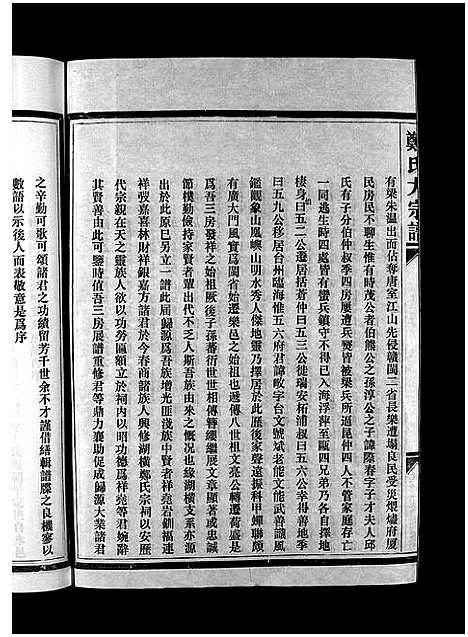 鄭氏大宗譜
有梁朱溫出而佔奪唐室江山先侵贛閩二省長樂遭塌良民受災煨燼府廈
民房民不聊生惟有時茂公者伯熊公之孫淳公之子諱蔭春字子才夫人邱
氏有子分伯仲叔季四房屢遭兵燹皆被梁兵所逼昆仲四人不管家庭存亡
一同逃生時四處皆有蠻兵鎮守不得已入海浮萍至甌四兄弟乃各自擇地
棲身五二公遷居括蒼仲曰五三公徙瑞安柘浦叔曰五六公幸得善地季
曰五九公移居台州臨海惟五六府君諱畋字台文號斌老能文能武善識風
鑑觀象山鳳嶼山明水秀人傑地靈乃擇居於此歷後家聲遠振科甲蟬聯頗
有廣大門風實為閩省始遷樂邑之始祖也遞傳八世祖文亮公轉遷荷盛是
為吾三房發祥之始祖厥後子孫蕃衍世世相傳簪纓繼展文章顯著或忠誠
節樸勤儉持家賢者輩出代不乏人斯吾族由來之慨况也緣湖橫支系亦源
出於此原已另立一譜此屆歸源為吾族增光匪淺族中賢者祥堯岩釧福連
祥弢嘉喜林財祥銀嘉方諸君於今春商諸族人興修湖橫鄭氏宗祠以安歷
代宗親在天之靈族人欲以功勞區額立於祠内以昭功德為祥堯等君婉辭
其賢善由此可鑒時值吾三房展譜重修君等鼎力襄助促成歸源大業諸君
之辛勤可歌可頌諸君之功績留芳千世余不才謹借緒輯譜牒之良機寥以
數語以示後人而表敬意是為序